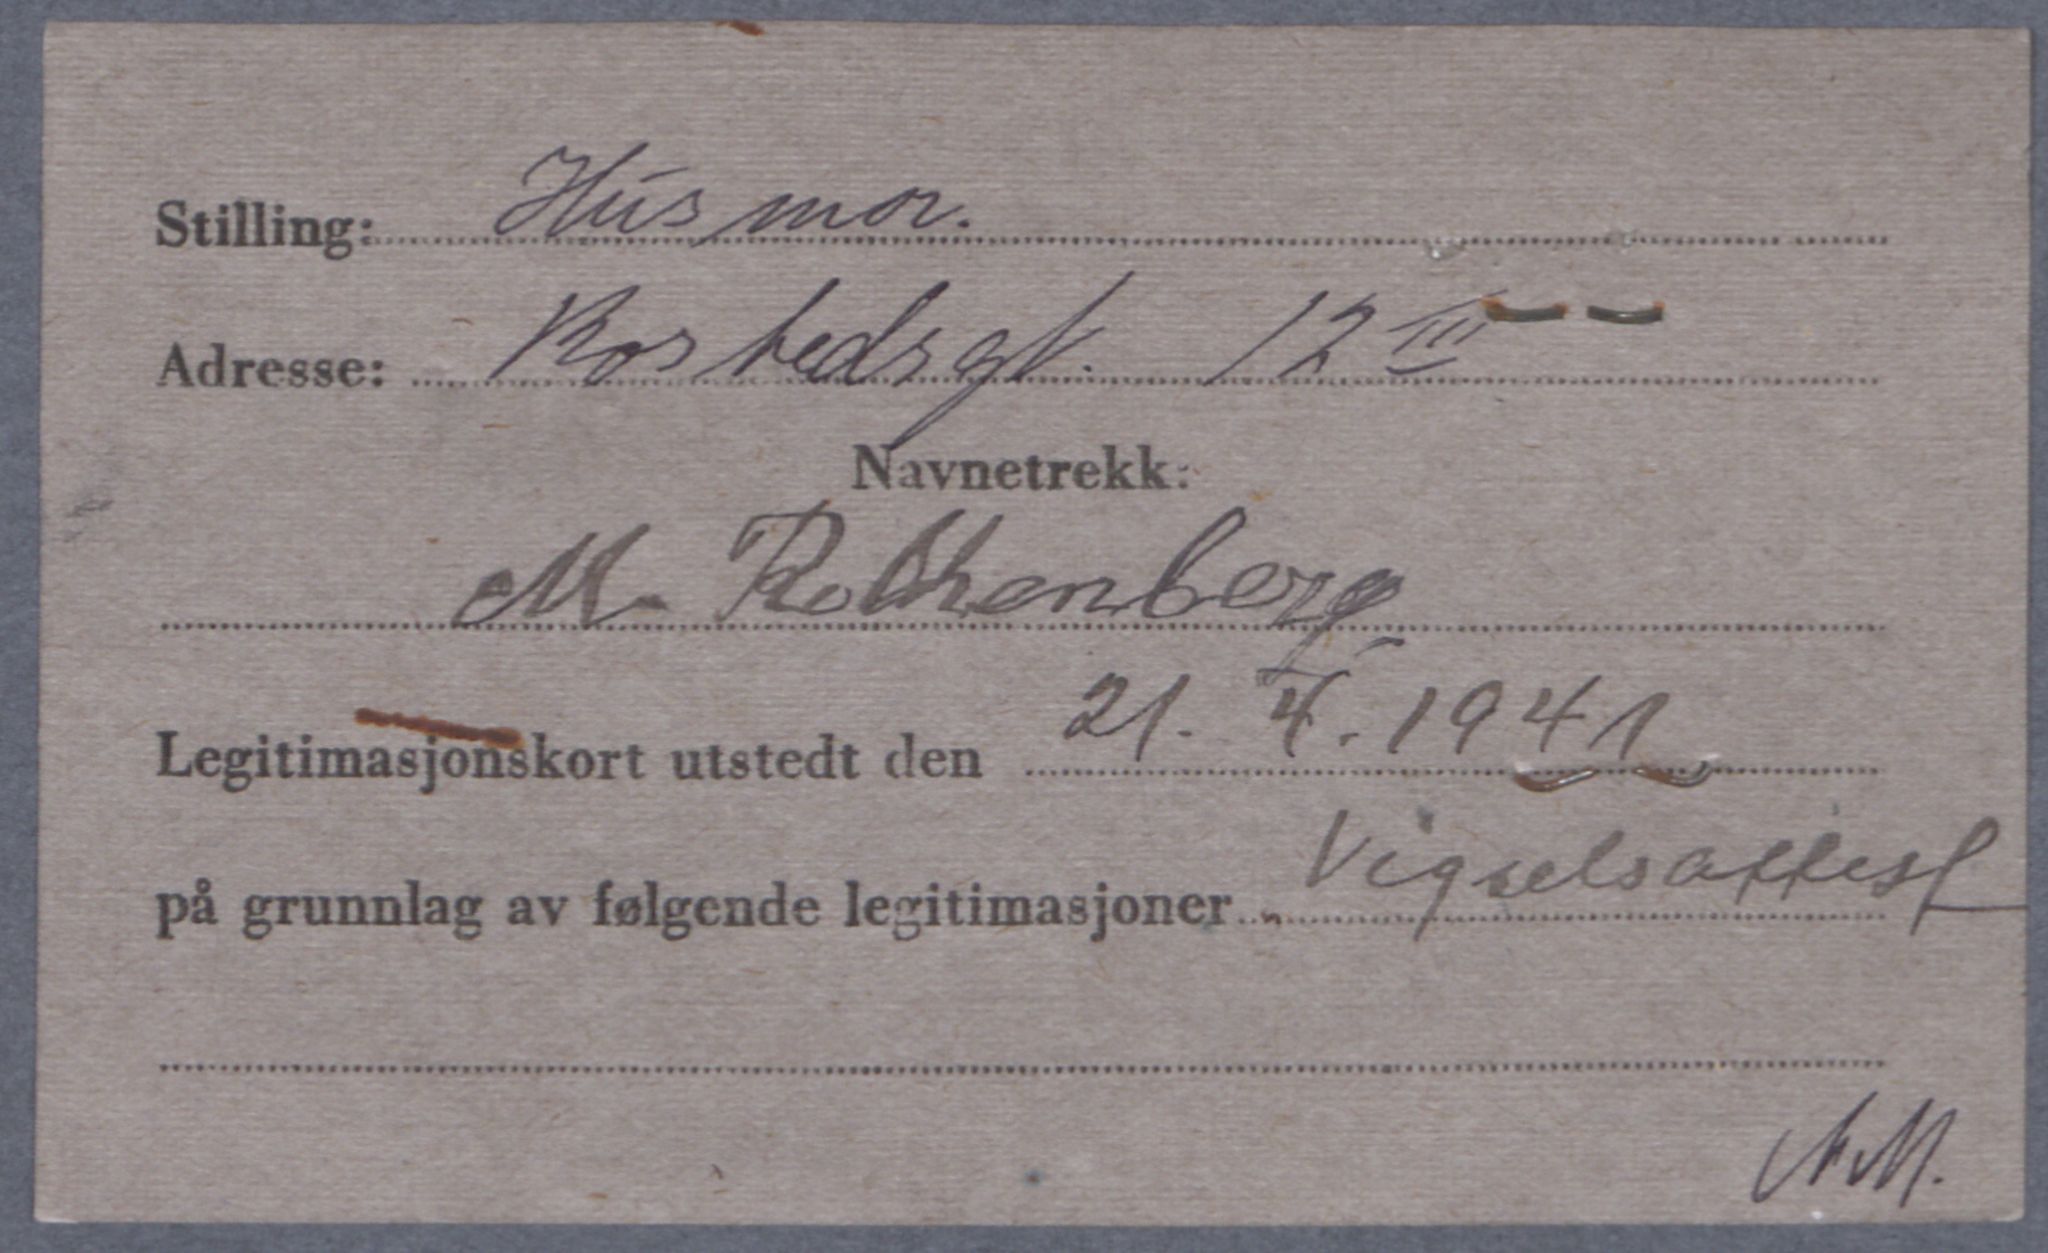 Stilling: Husmor.
Adresse: Rostedsgt. 12 III
Navnetrekk:
M. Rothenberg
Legitimasjonskort utstedt den 21. 4. 1941
på grunnlag av følgende legitimasjoner Vigselsattest